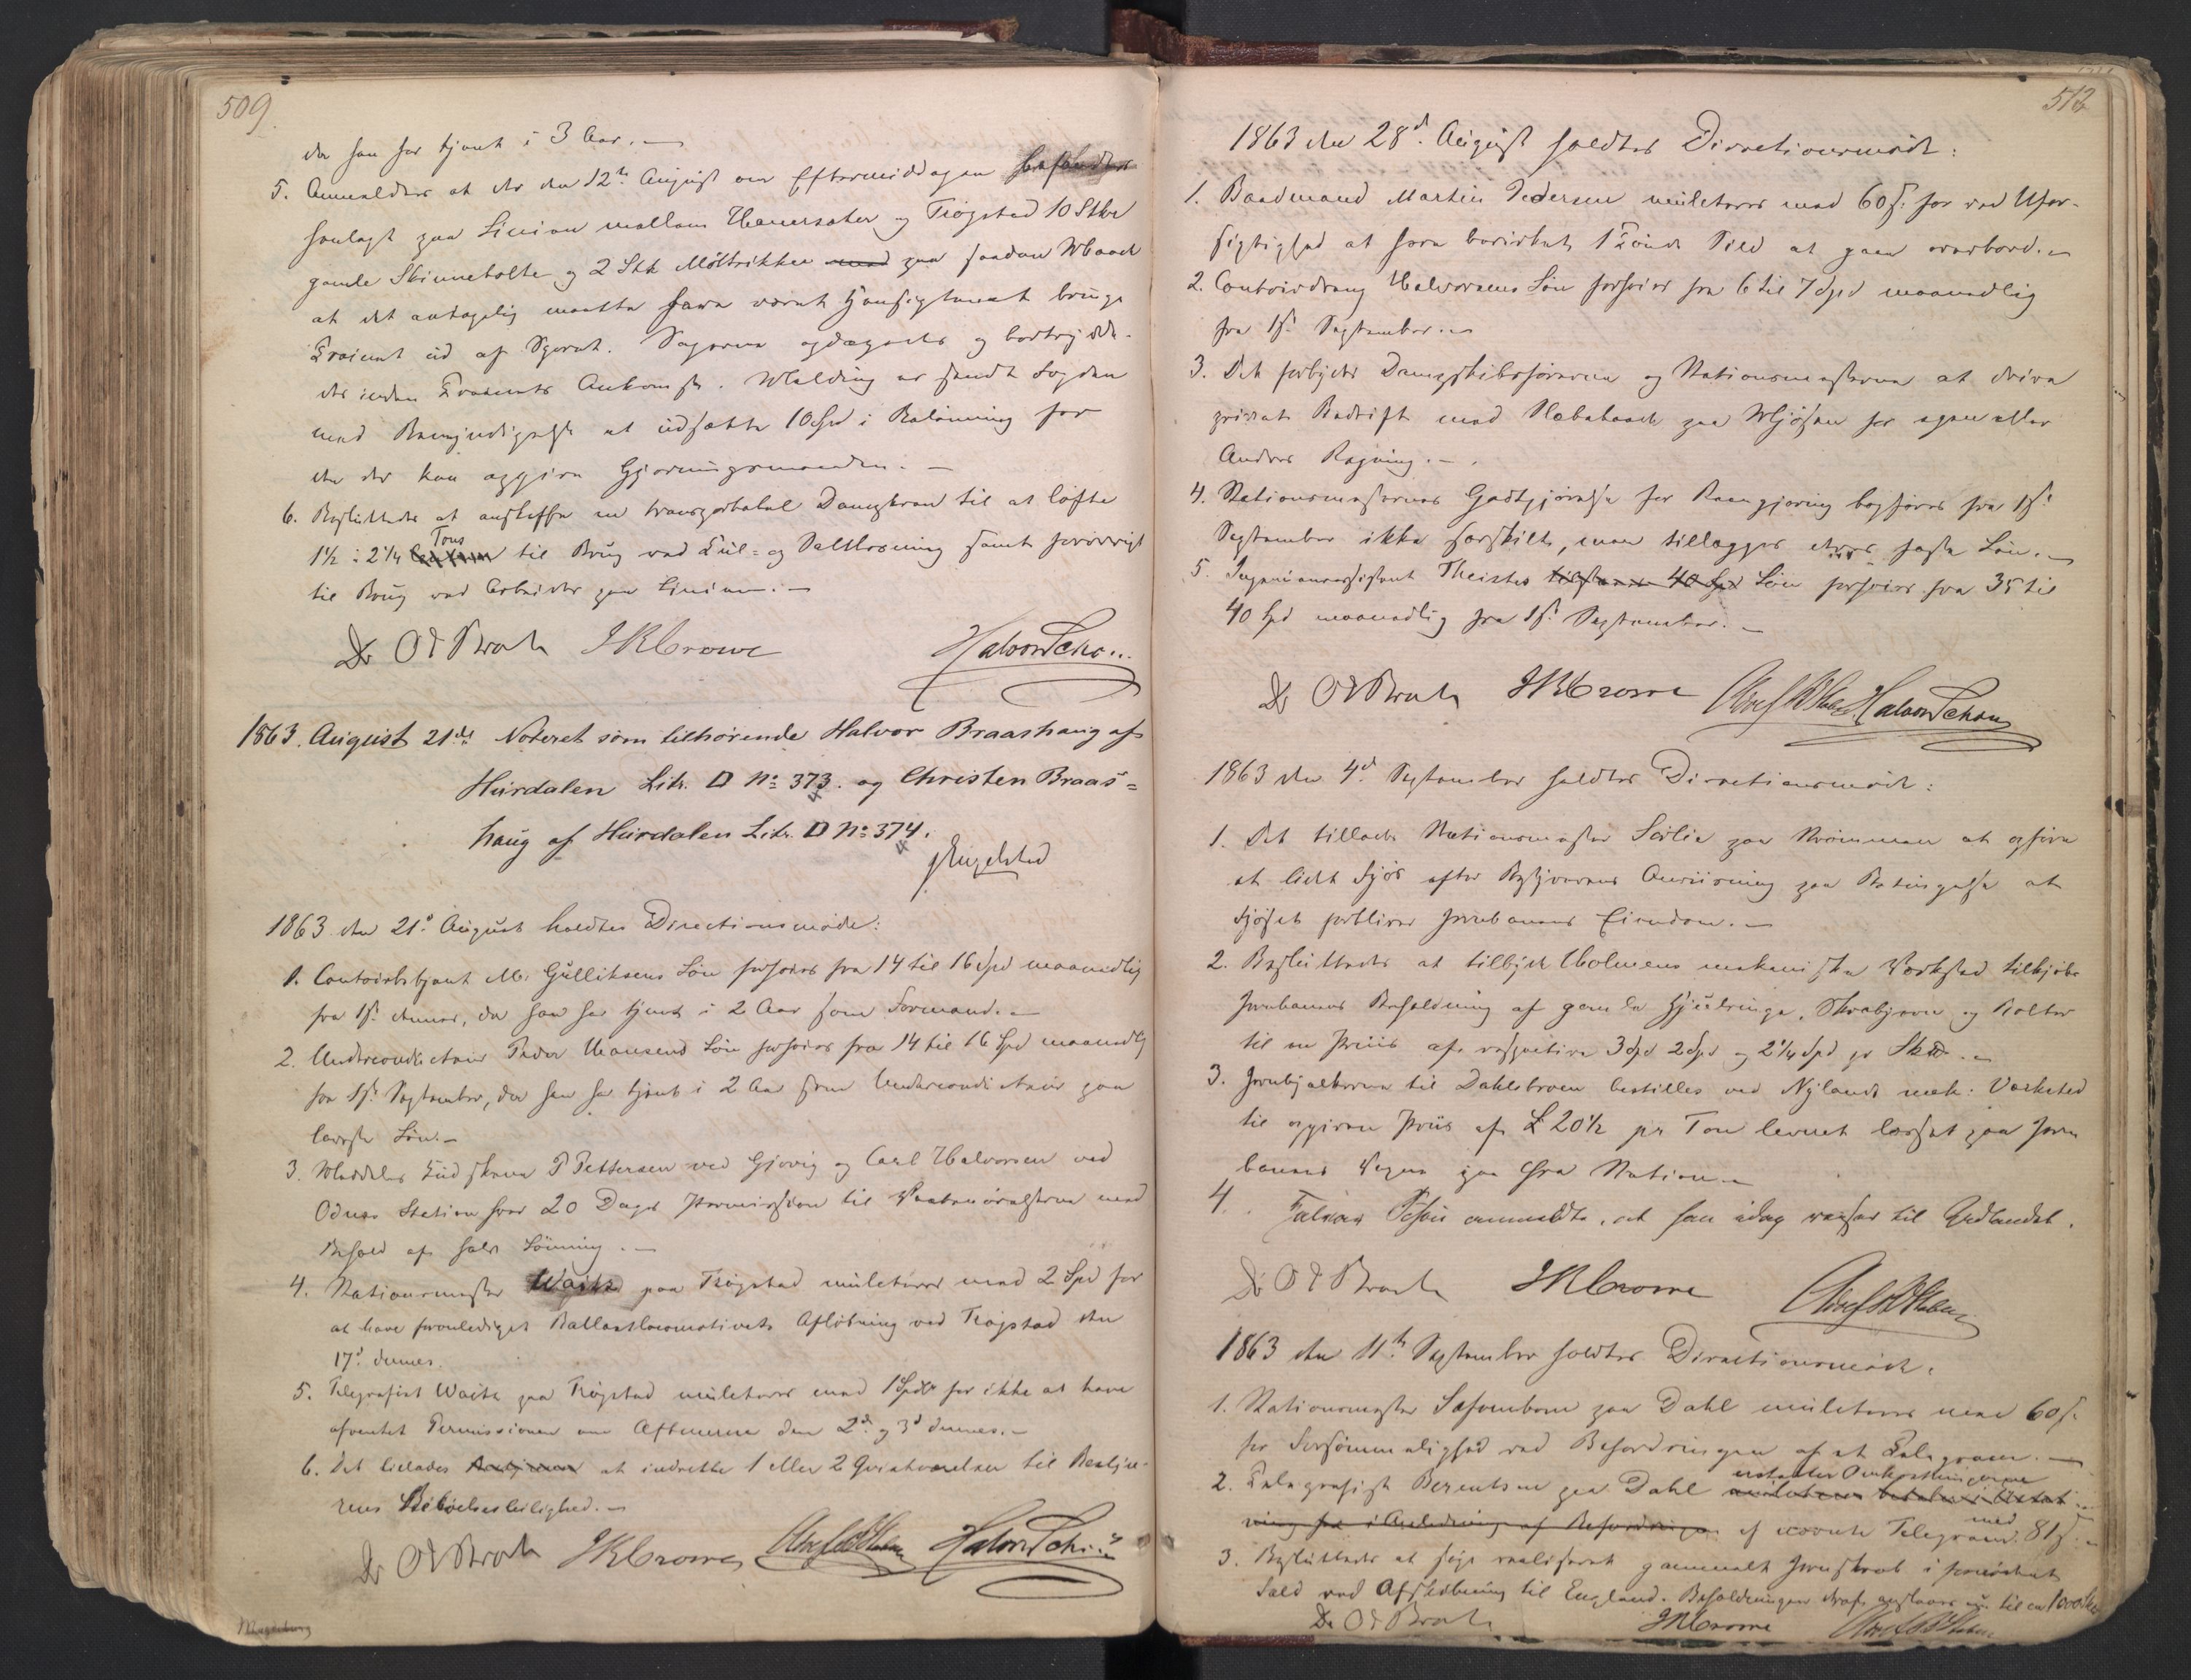 509.
da han har tjent i 3 Aar. —
5. Anmeldtes at der den 12te August om Eftermiddagen
henlagt paa Linien mellem Hauersæter og Trøgstad 10 Stkr
gamle Skinnebolte og 2 Stk Møttrikker med paa saadan Maade
at det antagelig maatte have været Hensigten at bringe
Trainet ud af Sporet. Sagerne opdagedes og bortryddedes
inden Trainets Ankomst. Melding er sendt Fogden
med Bemyndigelse at udsætte 10 Spd i Belønning for
den der kan opgive Gjerningsmanden. —
6. Besluttedes at anskaffe en transportabel Dampkran til at løfte
1½ à 2¼ Tons til Brug ved Kul- og Saltlosning samt forøvrigt
til Brug ved Arbeider paa Linien. —
Dr OJ Broch JRCrowe Halvor Schou
1863. August 21de Noteret som tilhørende Halvor Braashaug af
Hurdalen Litr. D No 373. og Christen Braas=
haug af Hurdalen Litr. D No 374.
Engelstad
1863 den 21d August holdtes Directionsmøde:
1. Contoirbetjent M. Gulliksens Løn forhøies fra 14 til 16 Spd maanedlig
fra 1ste dennes, da han har tjent i 2 Aar som Formand. —
2. Underconducteur Peder Hansens Løn forhøies fra 14 til 16 Spd maanedlig
fra 1ste September, da han har tjent i 2 Aar som Underconducteur paa
laveste Løn. —
3. Meddeles Budskaren P Pettersen ved Gjøvig og Carl Halvorsen ved
Odnæs Station hver 20 Dages Permission til Vaabenøvelserne med
Behold af halv Lønning. —
4. Stationsmester Waitz paa Trøgstad mulcteres med 2 Spd for
at have foranlediget Ballastlocomotivets Afløbning ved Trøgstad den
17d dennes.
5. Telegrafist Waitz paa Trøgstad mulcteres med 1 Spdlr for ikke at have
afventet Permissionen om Aftenerne den 2d og 3d dennes. —
6. Det tillades at indrette 1 eller 2 Qvistværelser til Bestyre-
rens Beboelsesleilighed. —
Dr OJ Broch JRCrowe Halvor Schou
512
1863 den 28d August holdtes Directionsmøde:
1. Baadmand Martin Pedersen mulcteres med 60 ß. for ved Ufor-
sigtighed at have bevirket 1 Tønde Sild at gaae overbord. —
2. Contoirdreng Halvorsens Løn forhøies fra 6 til 7 Spd maanedlig
fra 1ste September. —
3. Det forbydes Dampskibsførerne og Stationsmesterne at drive
privat Bedrift med Slæbebaade paa Mjøsen for egen eller
Andres Regning. —
4. Stationsmesternes Godtgjørelse for Rengjøring bogføres fra 1ste
September ikke særskilt, men tillægges deres faste Løn. —
5. Ingenieurassistent Theistes tilstaaes 40 Spd Løn forhøies fra 35 til
40 Spd maanedlig fra 1ste September. —
Dr OJ Broch JRCrowe Halvor Schou
1863 den 4d September holdtes Directionsmøde:
1. Det tillades Stationsmester Lølie paa Strømmen at opføre
et lidet Fjøs efter Bestyrerens Anviisning paa Betingelse at
Fjøset forbliver Jernbanens Eiendom. —
2. Besluttedes at tilbyde Holmens mekaniske Værksted tilkjøbs
Jernbanens Beholdning af gamle Hjulringe, Skrabjern og Bolter
til en Priis af respective 3 Spd 2 Spd og 2¼ Spd pr Sk℔. —
3. Jernbjælkerne til Dahlsbroen bestilles ved Nylands mek: Værksted
til opgiven Priis af £ 20½ pr Ton leveret læsset paa Jern
banens Vogne paa Station. —
4. Schou anmeldte, at han idag reiser til Udlandet.
Dr OJ Broch JRCrowe
1863 den 11te September holdtes Directionsmøde.
1. Stationsmester paa Dahl mulcteres med 60 ß.
for Forsømmelighed ved Befordringen af et Telegram. —
2. Telegrafist Berentsen paa Dahl erstatter Omkostningerne
ning for i Anledning af Befordringen af Telegram med 81 ß. —
3. Besluttedes at søge realiseret gammelt Jernskrab i
Fald ved Afskibning til England. Beholdningen deraf opgaaer nu til ca 1000
Dr OJ Broch JRCrowe